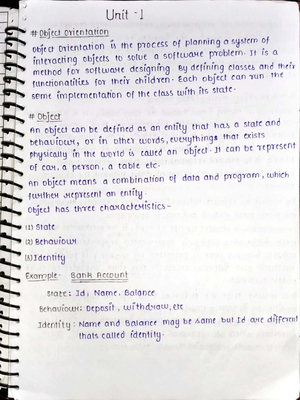 Unit - 1
# Object Orientation
Object Orientation is the process of planning a system of
interacting objects to solve a software problem. It is a
method for software designing by defining classes and their
functionalities for their children. Each object can run the
same implementation of the class with its state.
# Object
An object can be defined as an entity that has a state and
behaviour, or in other words, everything that exists
physically in the world is called an object. It can be represent
of car, a person, a table etc.
An object means a combination of data and program, which
further represent an entity.
Object has three characteristics -
(1) State
(2) Behaviour
(3) Identity
Example - Bank Account
State : Id, Name, Balance
Behaviour : Deposit, withdraw, etc
Identity : Name and Balance may be same but Id are different
thats called identity.